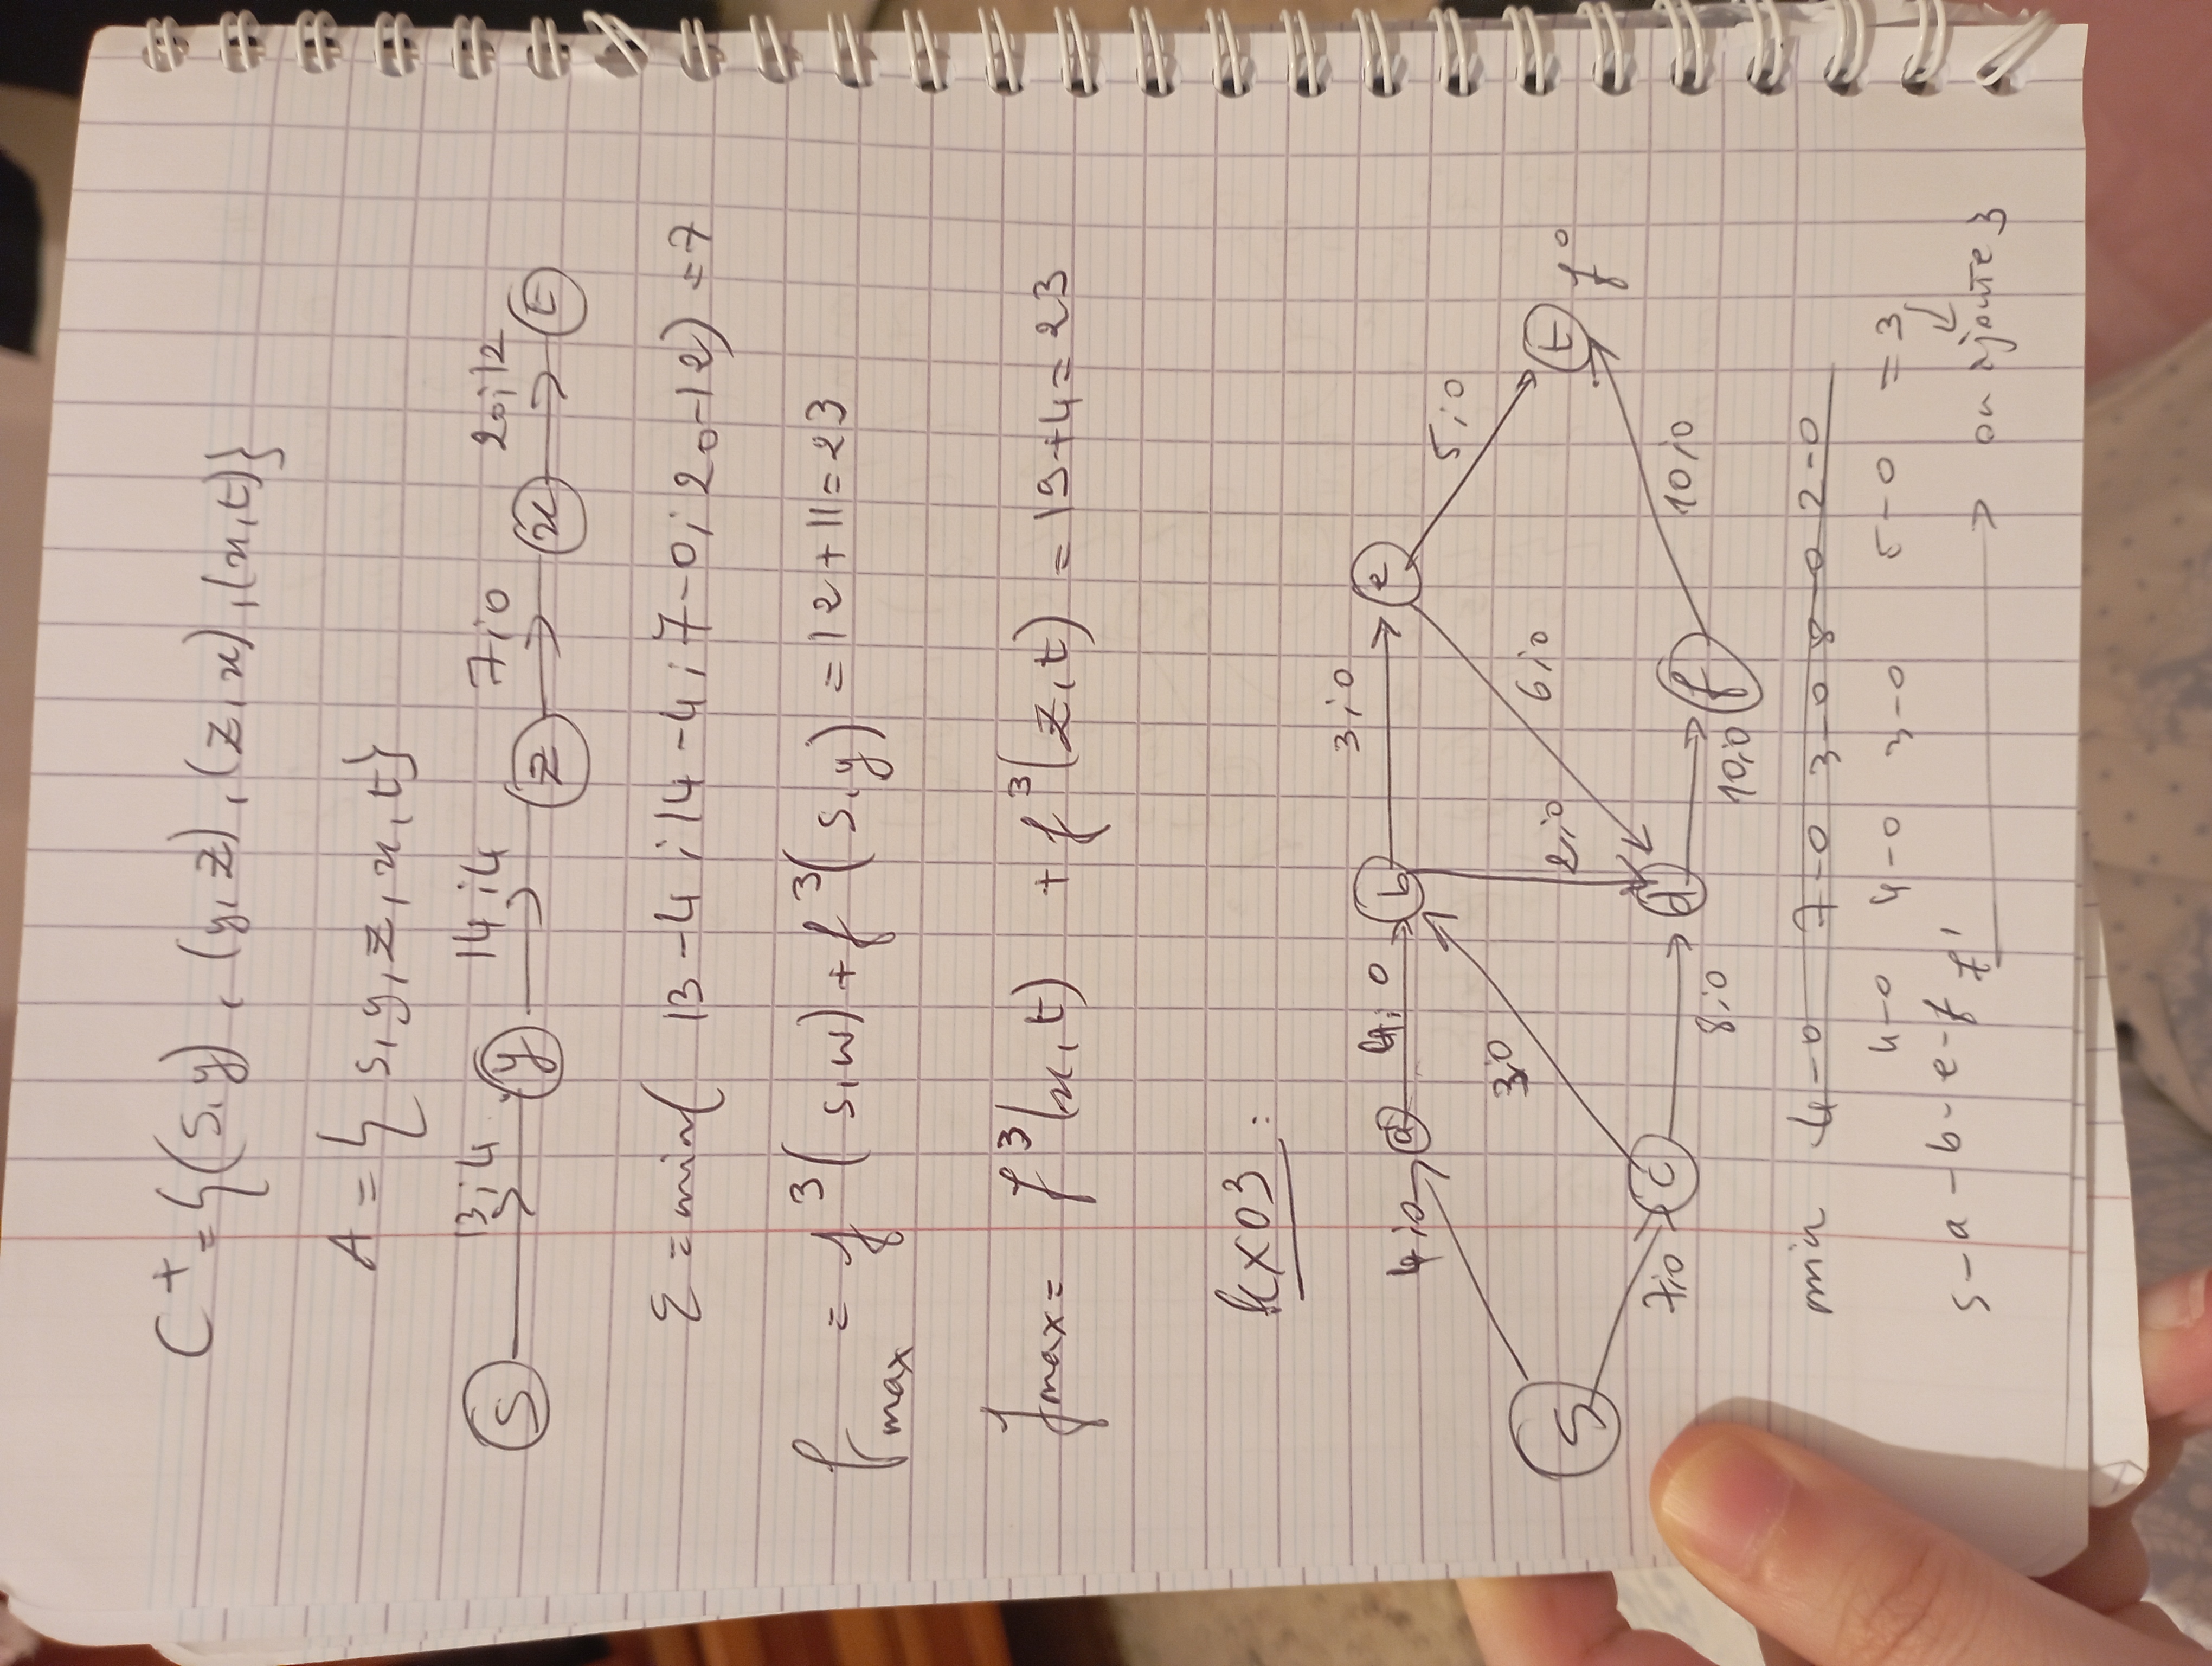 C⁺ = {(s,y), (y,z), (z,x), (x,t)}
A = { s, y, z, x, t}
13;4 14;4 7;0 20;12
S y z x t
ε = min( 13-4 ; 14-4 ; 7-0 ; 20-12) = 7
f max = f³( s,w) + f³( s,y) = 12 + 11 = 23
fmax = f³(x,t) + f³(z,t) = 19+4 = 23
Ex03 :
3;0
4;0 a 4;0 b e
5;0
3;0
6;0
2;0
S t f⁰
7;0 c d f 10;0
8;0 10;0
min 4-0 7-0 3-0 8-0 2-0
4-0 4-0 3-0 5-0 = 3
s-a-b-e-f f¹ on ajoute 3